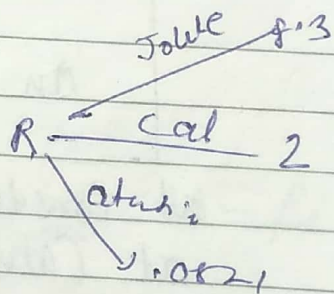 Joule 8.3
R Cal 2
atm .0821